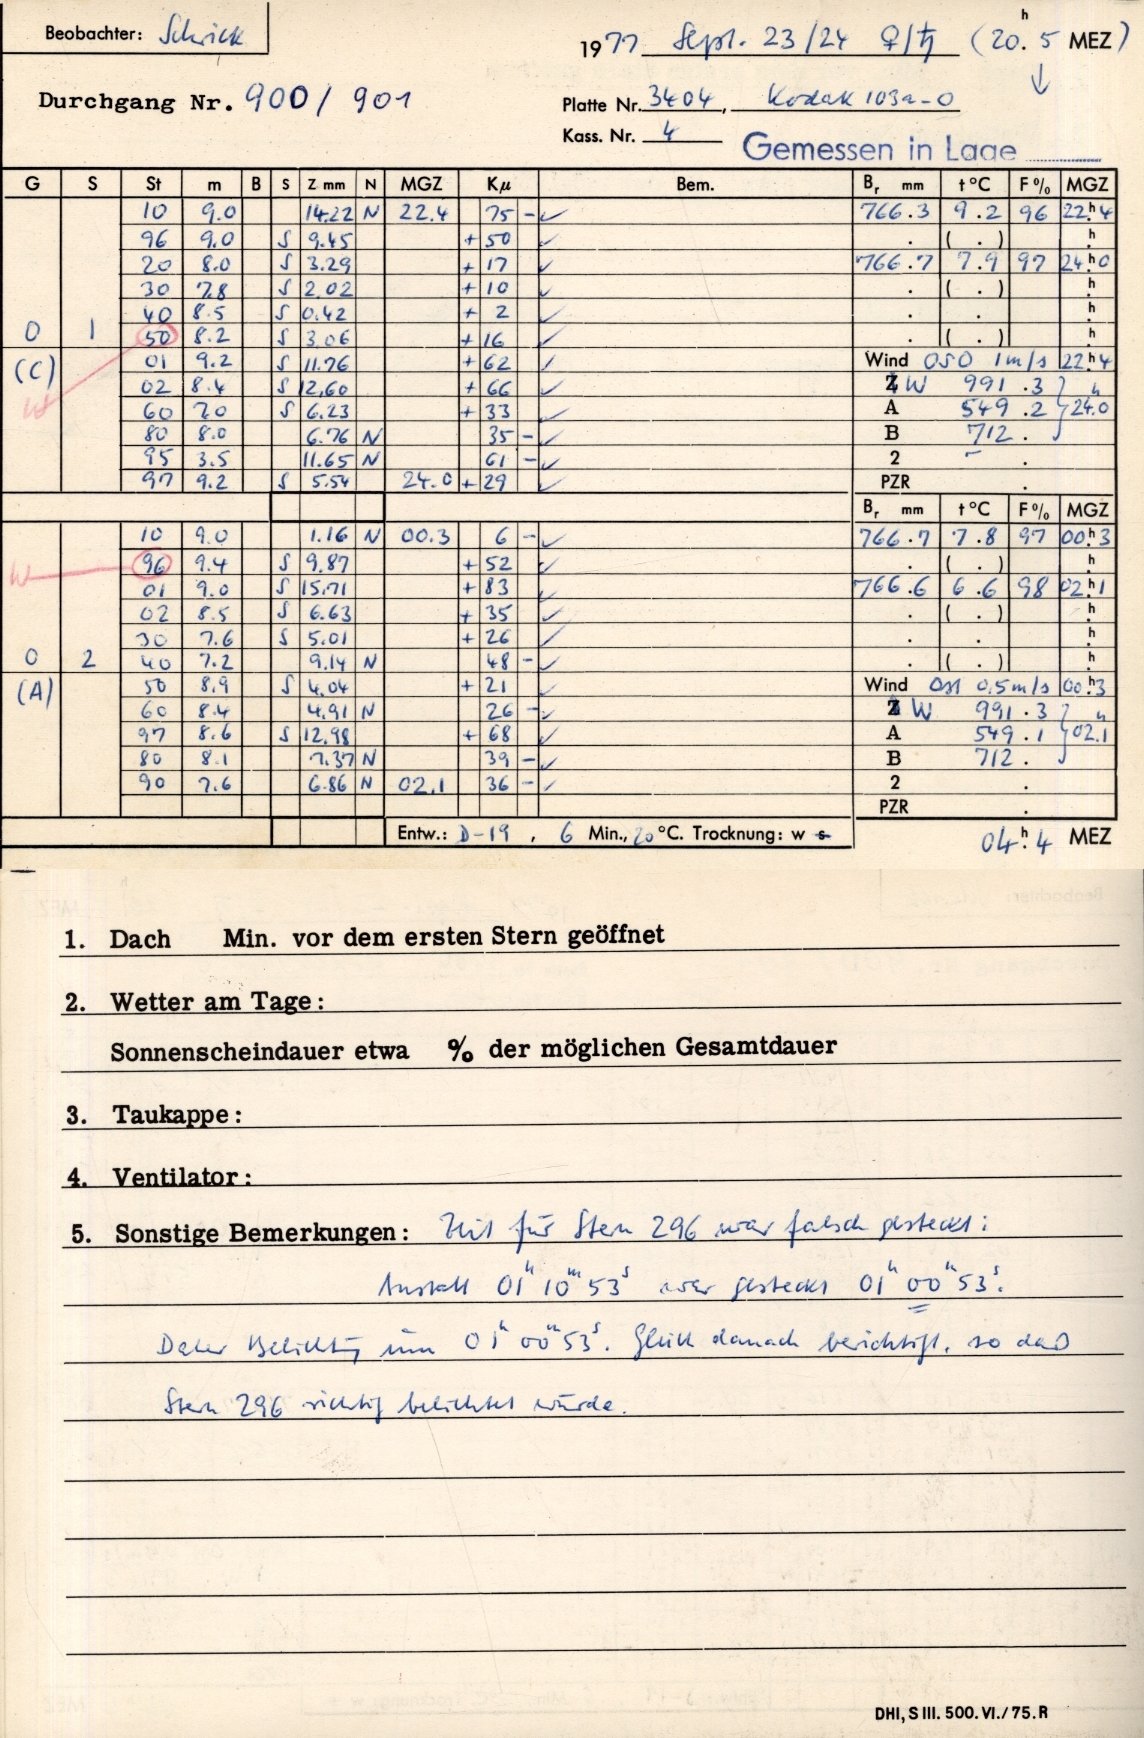 Beobachter: Schrick
1977 Sept. 23/24 ♀/♄ (20.ʰ5 MEZ)
Durchgang Nr. 900/901
Platte Nr. 3404, Kodak 103a-O
Kass. Nr. 4
Gemessen in Lage
G S St m B S Z mm N MGZ Kμ Bem. Bᵣ mm t°C F% MGZ
10 9.0 14.22 N 22.4 75 - ✓ 766.3 9.2 96 22.ʰ4
96 9.0 S 9.45 + 50 ✓ . ( . ) ʰ
20 8.0 S 3.29 + 17 ✓ 766.7 7.9 97 24.ʰ0
30 7.8 S 2.02 + 10 ✓ . ( . ) ʰ
40 8.5 S 0.42 + 2 ✓ . . ʰ
0 1 50 8.2 S 3.06 + 16 ✓ . ( . ) ʰ
(C) 01 9.2 S 11.76 + 62 ✓ Wind OSO 1 m/s 22.ʰ4
W 02 8.4 S 12.60 + 66 ✓ W 991.3 h
60 7.0 S 6.23 + 33 ✓ A 549.2 24.0
80 8.0 6.76 N 35 - ✓ B 712.
95 3.5 11.65 N 61 - ✓ 2 - .
97 9.2 S 5.54 24.0 + 29 ✓ PZR .
Bᵣ mm t°C F% MGZ
10 9.0 1.16 N 00.3 6 - ✓ 766.7 7.8 97 00.ʰ3
W 96 9.4 S 9.87 + 52 ✓ . ( . ) ʰ
01 9.0 S 15.71 + 83 ✓ 766.6 6.6 98 02.ʰ1
02 8.5 S 6.63 + 35 ✓ . ( . ) ʰ
30 7.6 S 5.01 + 26 ✓ . . ʰ
0 2 40 7.2 9.14 N 48 - ✓ . ( . ) ʰ
(A) 50 8.9 S 4.04 + 21 ✓ Wind Ost 0,5 m/s 00.ʰ3
60 8.4 4.91 N 26 - ✓ W 991.3 h
97 8.6 S 12.98 + 68 ✓ A 549.1 02.1
80 8.1 7.37 N 39 - ✓ B 712.
90 7.6 6.86 N 02.1 36 - ✓ 2 .
PZR .
Entw.: D-19, 6 Min., 20°C. Trocknung: w s 04.ʰ4 MEZ
1. Dach Min. vor dem ersten Stern geöffnet
2. Wetter am Tage:
Sonnenscheindauer etwa % der möglichen Gesamtdauer
3. Taukappe:
4. Ventilator:
5. Sonstige Bemerkungen: Zeit für Stern 296 war falsch gesteckt:
Anstatt 01ʰ 10ᵐ 53ˢ war gesteckt 01ʰ 00ᵐ 53ˢ.
Daher Belichtg um 01ʰ 00ᵐ 53ˢ. Gleich danach berichtigt, so daß
Stern 296 richtig belichtet wurde.
DHI, S III. 500. VI./75. R